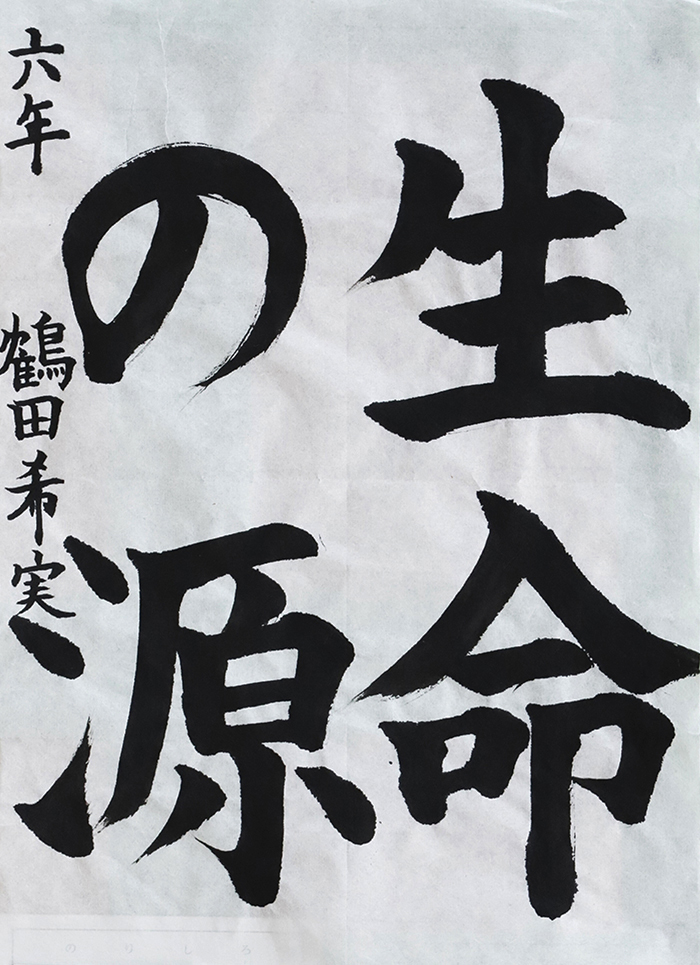 生命
の源
六年 鶴田希実
のりしろ